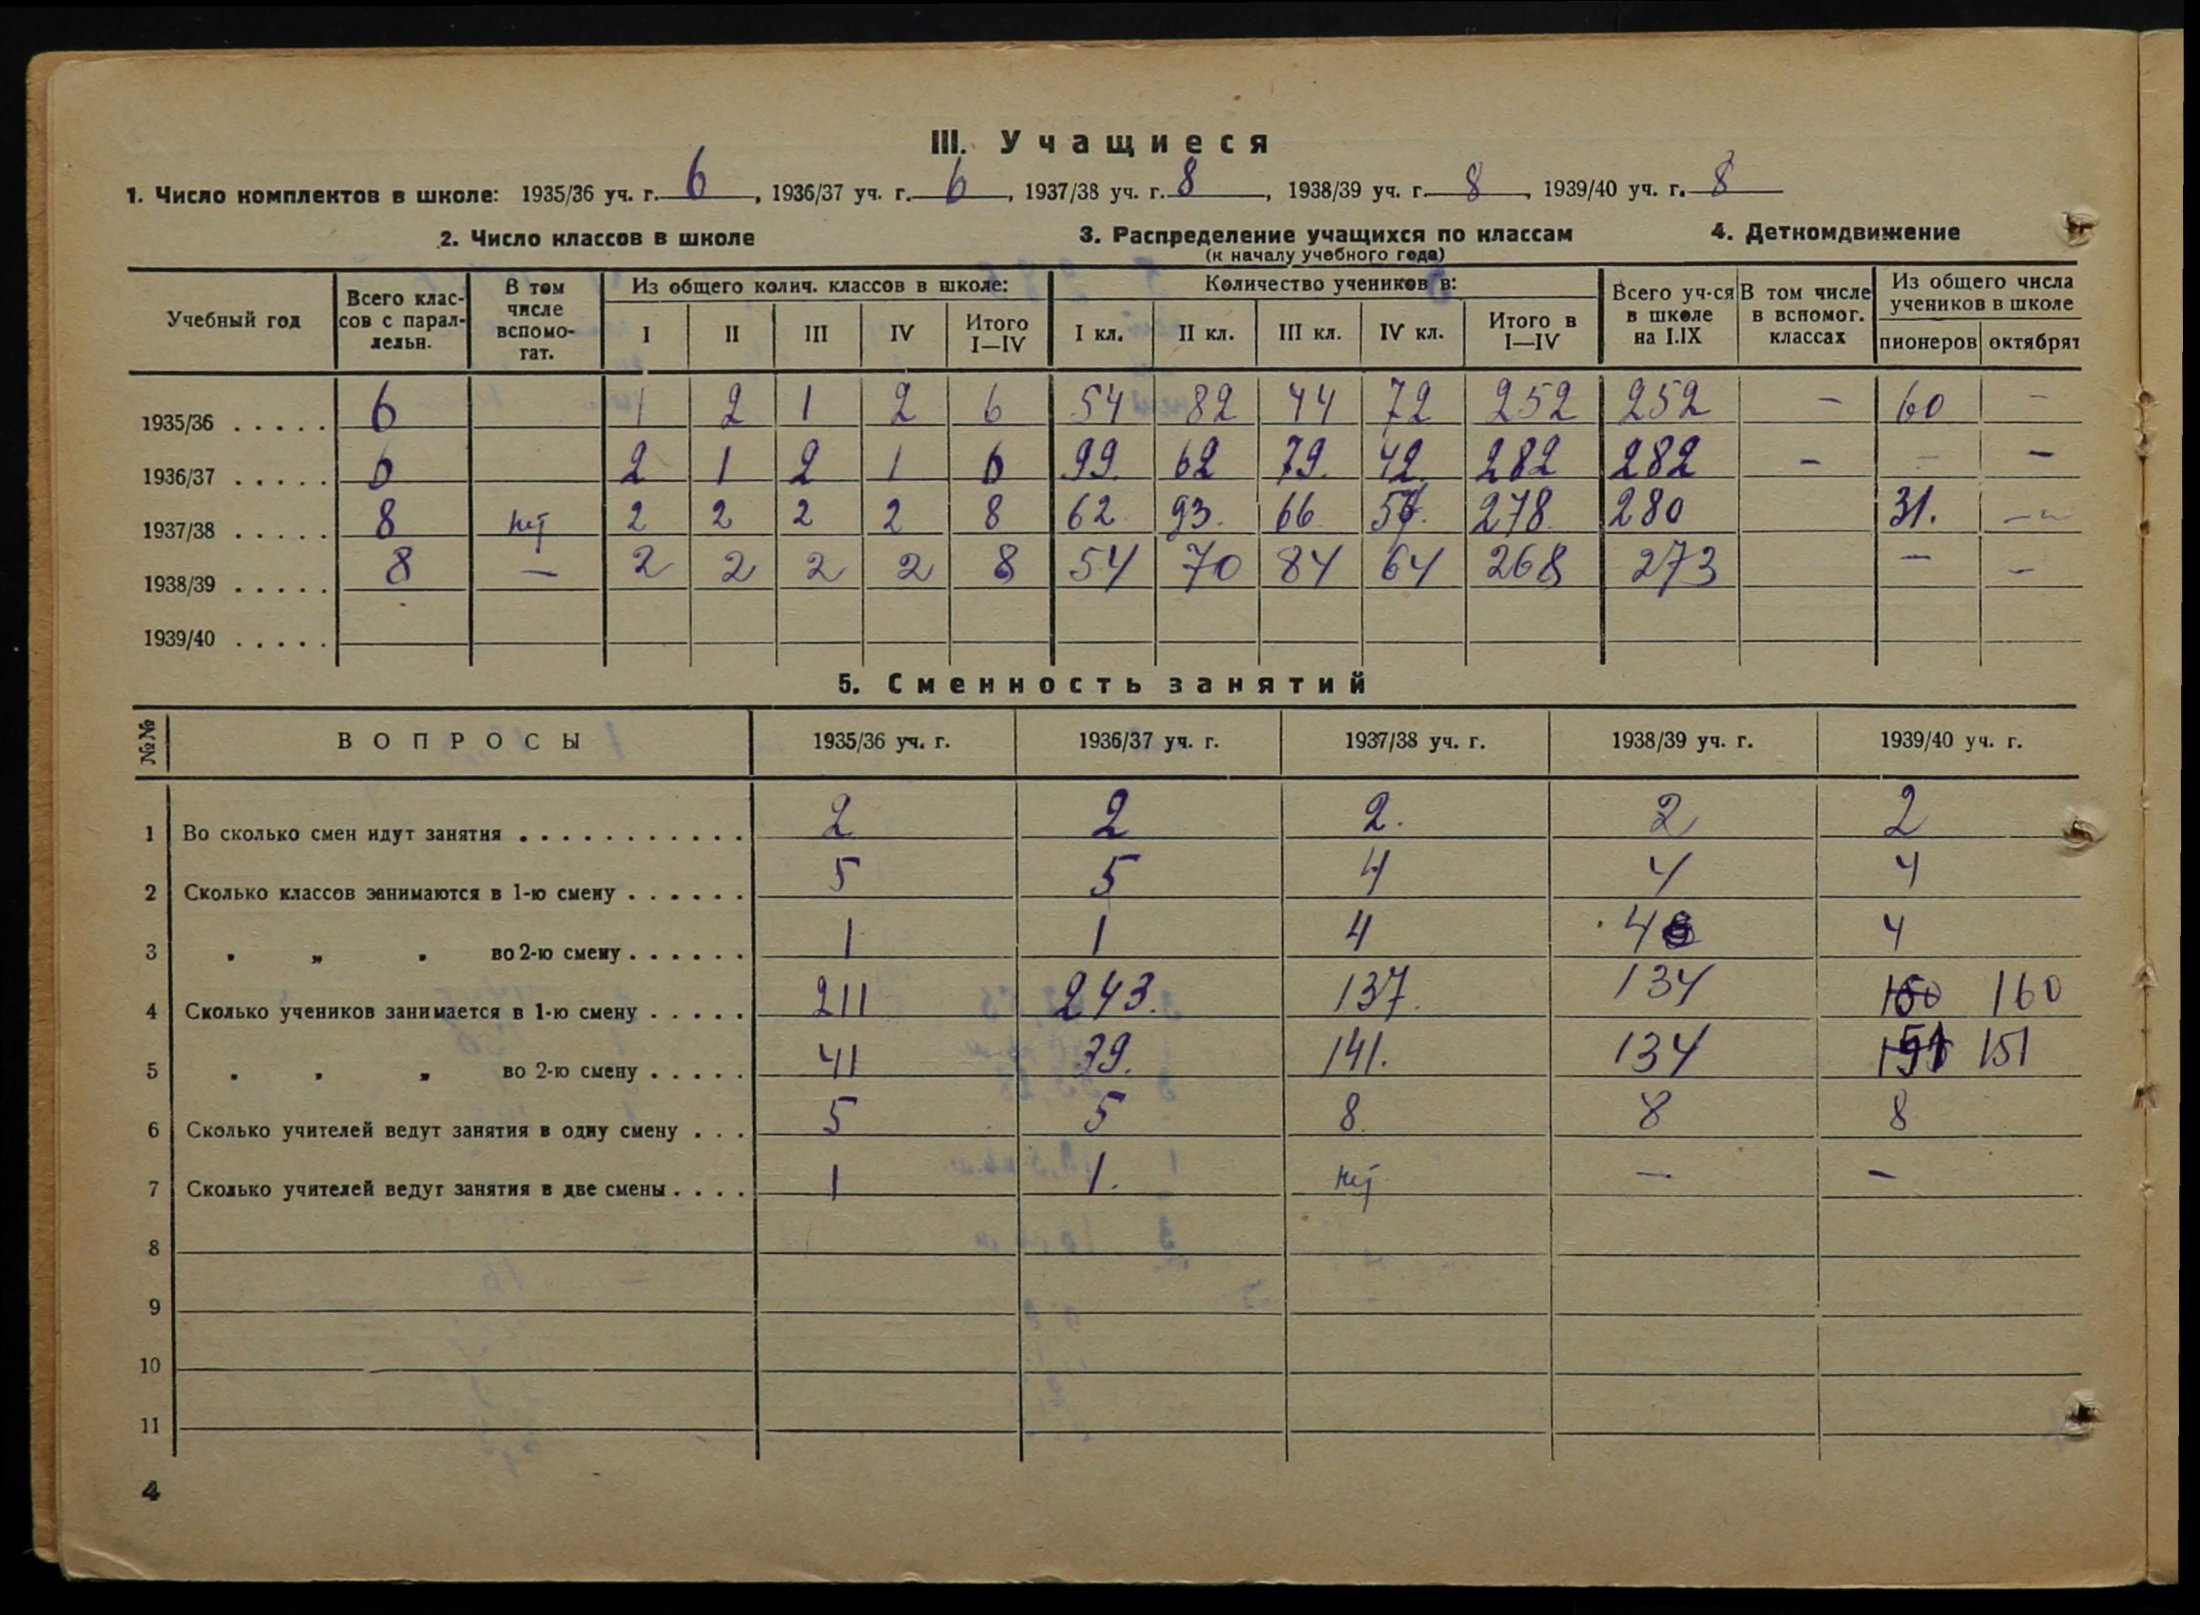 III. Учащиеся
1. Число комплектов в школе: 1935/36 уч. г. 6, 1936/37 уч. г. 6, 1937/38 уч. г. 8, 1938/39 уч. г. 8, 1939/40 уч. г. 8
2. Число классов в школе 3. Распределение учащихся по классам 4. Деткомдвижение
(к началу учебного года)
Учебный год Всего классов с параллельн. В том числе вспомогат. Из общего колич. классов в школе: Количество учеников в: Всего уч-ся в школе на I.IX В том числе в вспомог. классах Из общего числа учеников в школе
I II III IV Итого I—IV I кл. II кл. III кл. IV кл. Итого в I—IV пионеров октябрят
1935/36 . . . . . 6 1 2 1 2 6 54 82 44 72 252 252 — 60 —
1936/37 . . . . . 6 2 1 2 1 6 99. 62 79. 42. 282 282 — — —
1937/38 . . . . . 8 нет 2 2 2 2 8 62 93. 66 57. 278. 280 31. —
1938/39 . . . . . 8 — 2 2 2 2 8 54 70 84 64 268 273 — —
1939/40 . . . . .
5. Сменность занятий
№№ ВОПРОСЫ 1935/36 уч. г. 1936/37 уч. г. 1937/38 уч. г. 1938/39 уч. г. 1939/40 уч. г.
1 Во сколько смен идут занятия . . . . . . . . . . . 2 2 2. 2 2
2 Сколько классов занимаются в 1-ю смену . . . . . . 5 5 4 4 4
3 „ „ „ во 2-ю смену . . . . . . 1 1 4 4 4
4 Сколько учеников занимается в 1-ю смену . . . . . 211 243. 137. 134 160
5 „ „ „ во 2-ю смену . . . . . 41 39. 141. 134 151
6 Сколько учителей ведут занятия в одну смену . . . 5 5 8. 8 8
7 Сколько учителей ведут занятия в две смены . . . . 1 1. нет — —
8
9
10
11
4